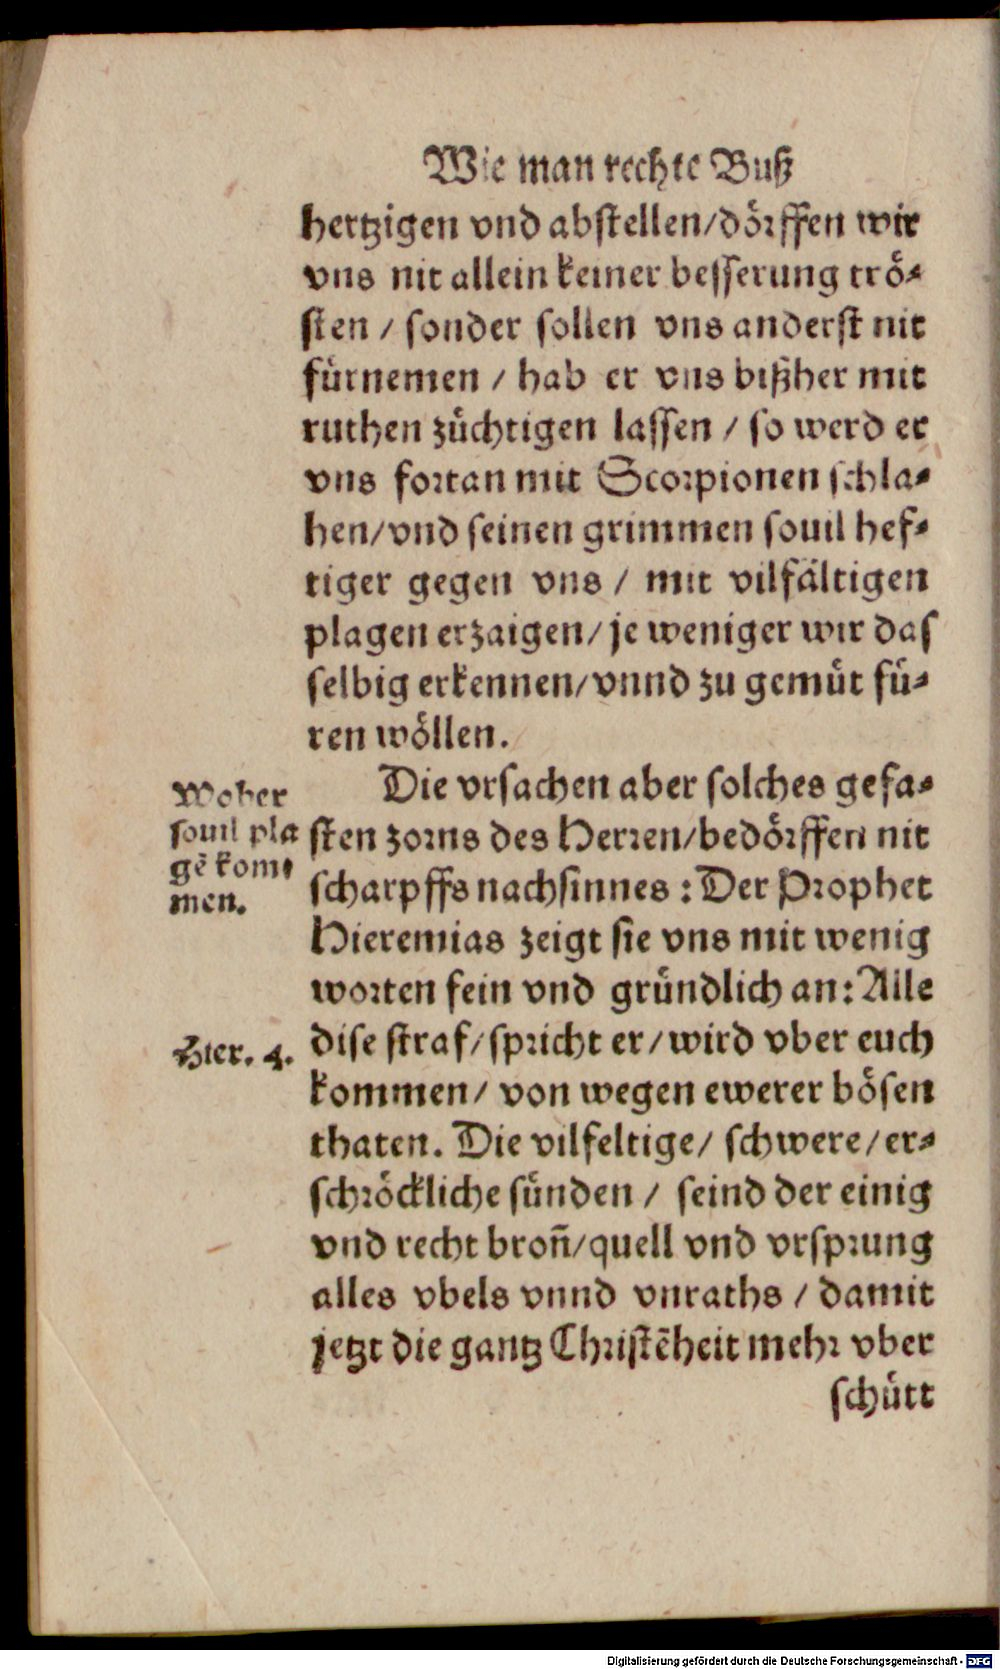 Wie man rechte Buß
hertzigen vnd abstellen/dörffen wir
vns nit allein keiner besserung trö-
sten / sonder sollen vns anderst nit
fürnemen / hab er vns bißher mit
ruthen züchtigen lassen / so werd er
vns fortan mit Scorpionen schla-
hen/vnd seinen grimmen souil hef-
tiger gegen vns / mit vilfältigen
plagen erzaigen/je weniger wir das
selbig erkennen/vnnd zu gemüt fü-
ren wöllen.
Die vrsachen aber solches gefa-
Woher
souil pla
gē kom-
men.
sten zorns des Herren/bedörffen nit
scharpffs nachsinnes : Der Prophet
Hieremias zeigt sie vns mit wenig
worten fein vnd gründlich an: Alle
Hier. 4.
dise straf/spricht er/wird vber euch
kommen/ von wegen ewerer bösen
thaten. Die vilfeltige/ schwere/er-
schröckliche sünden / seind der einig
vnd recht bron̄/quell vnd vrsprung
alles vbels vnnd vnraths / damit
jetzt die gantz Christēheit mehr vber
schütt
Digitalisierung gefördert durch die Deutsche Forschungsgemeinschaft - DFG